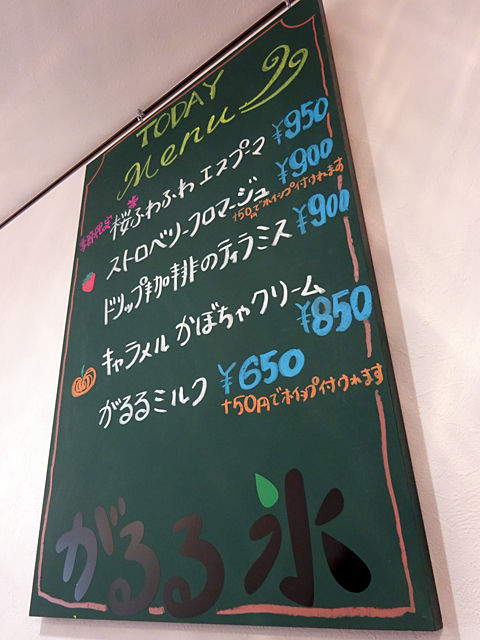 TODAY
Menu
季節限定 桜ふわふわ エスプーマ ¥950
ストロベリーフロマージュ ¥900
+50円でホイップ付けれます
ドリップ珈琲のティラミス ¥900
キャラメル かぼちゃクリーム ¥850
がるるミルク ¥650
+50円でホイップ付けれます
がるる氷